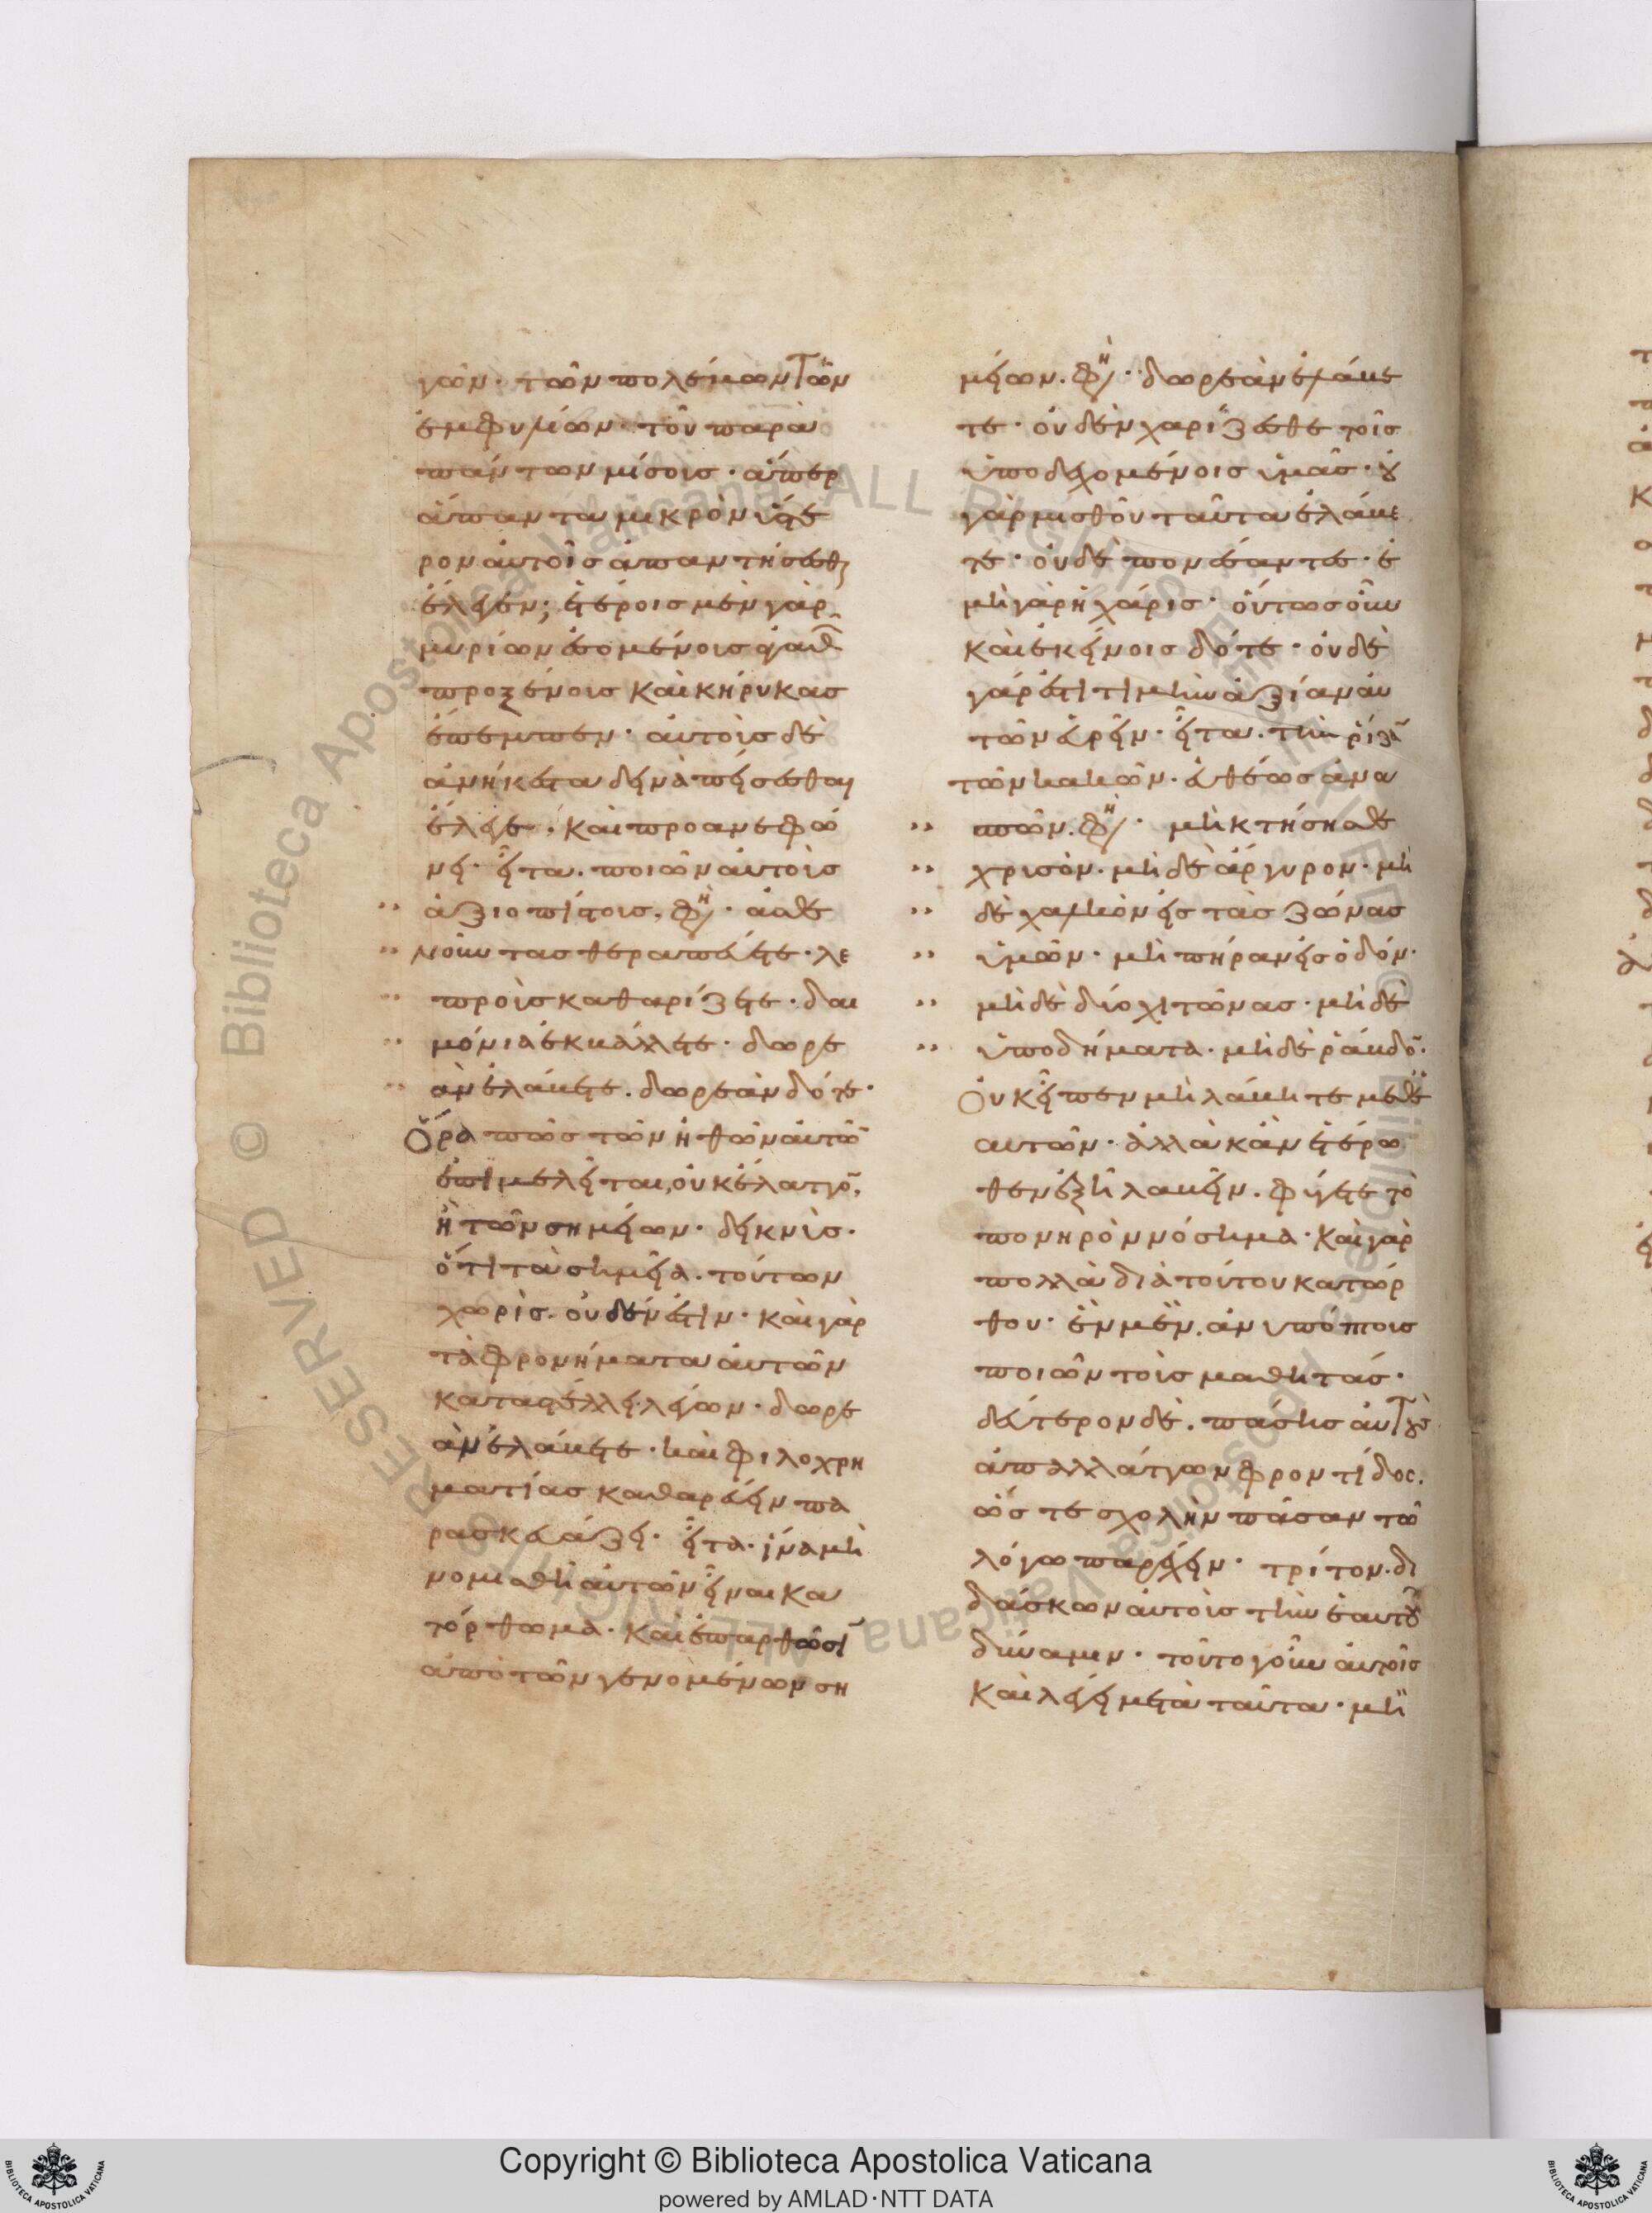 γῶν· τῶν πολέμων τῶν
ἐμφυλίων· τοῦ παρὰ
πάντων μίσους· ἅπερ
ἅπαντα μικρὸν ὕστε
ρον αὐτοῖς ἀπαντήσεσθ
ἔλεγεν; ἑτέροις μὲν γὰρ
μυρίων ἐσομένοις ἀγαθ
προξένοις καὶ κήρυκας
ἔπεμπεν· αὐτοῖς δὲ
ἀνήκεστα δεινὰ πείσεσθαι
ἔλεγε, καὶ προανεφώ
νει· εἶτα. ποιῶν αὐτοὺς
ἀξιοπίστους, φη· ἀσθε
νοῦντας θεραπεύετε· λε
προὺς καθαρίζετε· δαι
μόνια ἐκβάλλετε· δωρε
ὰν ἐλάβετε. δωρεὰν δότε·
Ὅρα πῶς τῶν ἠθῶν αὐτῶ
ἐπιμελεῖται, οὐκ ἔλαττο,
ἢ τῶν σημείων· δεικνὺς·
ὅτι τὰ σημεῖα. τούτων
χωρὶς. οὐδέν ἐστιν· καὶ γὰρ
τὰ φρονήματα αὐτῶν
καταστέλλει λέγων· δωρε
ὰν ἐλάβετε· καὶ φιλοχρη
ματίας καθαρεύειν πα
ρασκευάζει· εἶτα· ἵνα μὴ
νομισθῆ αὐτῶν εἶναι κα
τόρθωμα· καὶ ἐπαρθῶσι
ἀπὸ τῶν γενομένων ση
μείων. φη· δωρεὰν ἐλάβε
τε· οὐδὲν χαρίζεσθε τοῖς
ὑποδεχομένοις ὑμᾶς· οὐ
γὰρ μισθοῦ ταῦτα ἐλάβε
τε· οὐδὲ πονέσαντες· ἐ
μὴ γὰρ ἡ χάρις· οὕτως οὖν
καὶ ἐκείνοις δότε· οὐδὲ
γάρ ἐστι τιμὴν ἀξίαν αὐ
τῶν εὑρεῖν· εἶτα. τὴν ῥίζα
τῶν κακῶν. εὐθέως ἀνα
σπῶν. φη· μὴ κτήσησθε
χρυσόν. μὴ δὲ ἄργυρον· μὴ
δὲ χαλκὸν εἰς τὰς ζώνας
ὑμῶν· μὴ πήραν εἰς ὁδόν·
μὴ δὲ δύο χιτῶνας· μὴ δὲ
ὑποδήματα· μὴ δὲ ῥάβδο·
Οὐκ εἶπεν μὴ λάβητε μεθ'
αυτῶν· ἀλλὰ κἂν ἑτέρω
θεν ἐξῆ λαβεῖν. φεύγετε τὸ
πονηρὸν νόσημα· καὶ γὰρ
πολλὰ διὰ τούτου κατώρ
θου· ἓν μὲν. ἀνυπόπτους
ποιῶν τοὺς μαθητάς·
δεύτερον δὲ. πάσης αὐτοὺς
ἀπαλλάττων φροντίδος.
ὥστε σχολὴν πᾶσαν τῶ
λόγω παρέχειν· τρίτον. δι
δάσκων αὐτοὺς τὴν ἑαυτοῦ
δύναμιν· τοῦτο γοῦν αὐτοῖς
καὶ λέγει μετὰ ταῦτα· μή